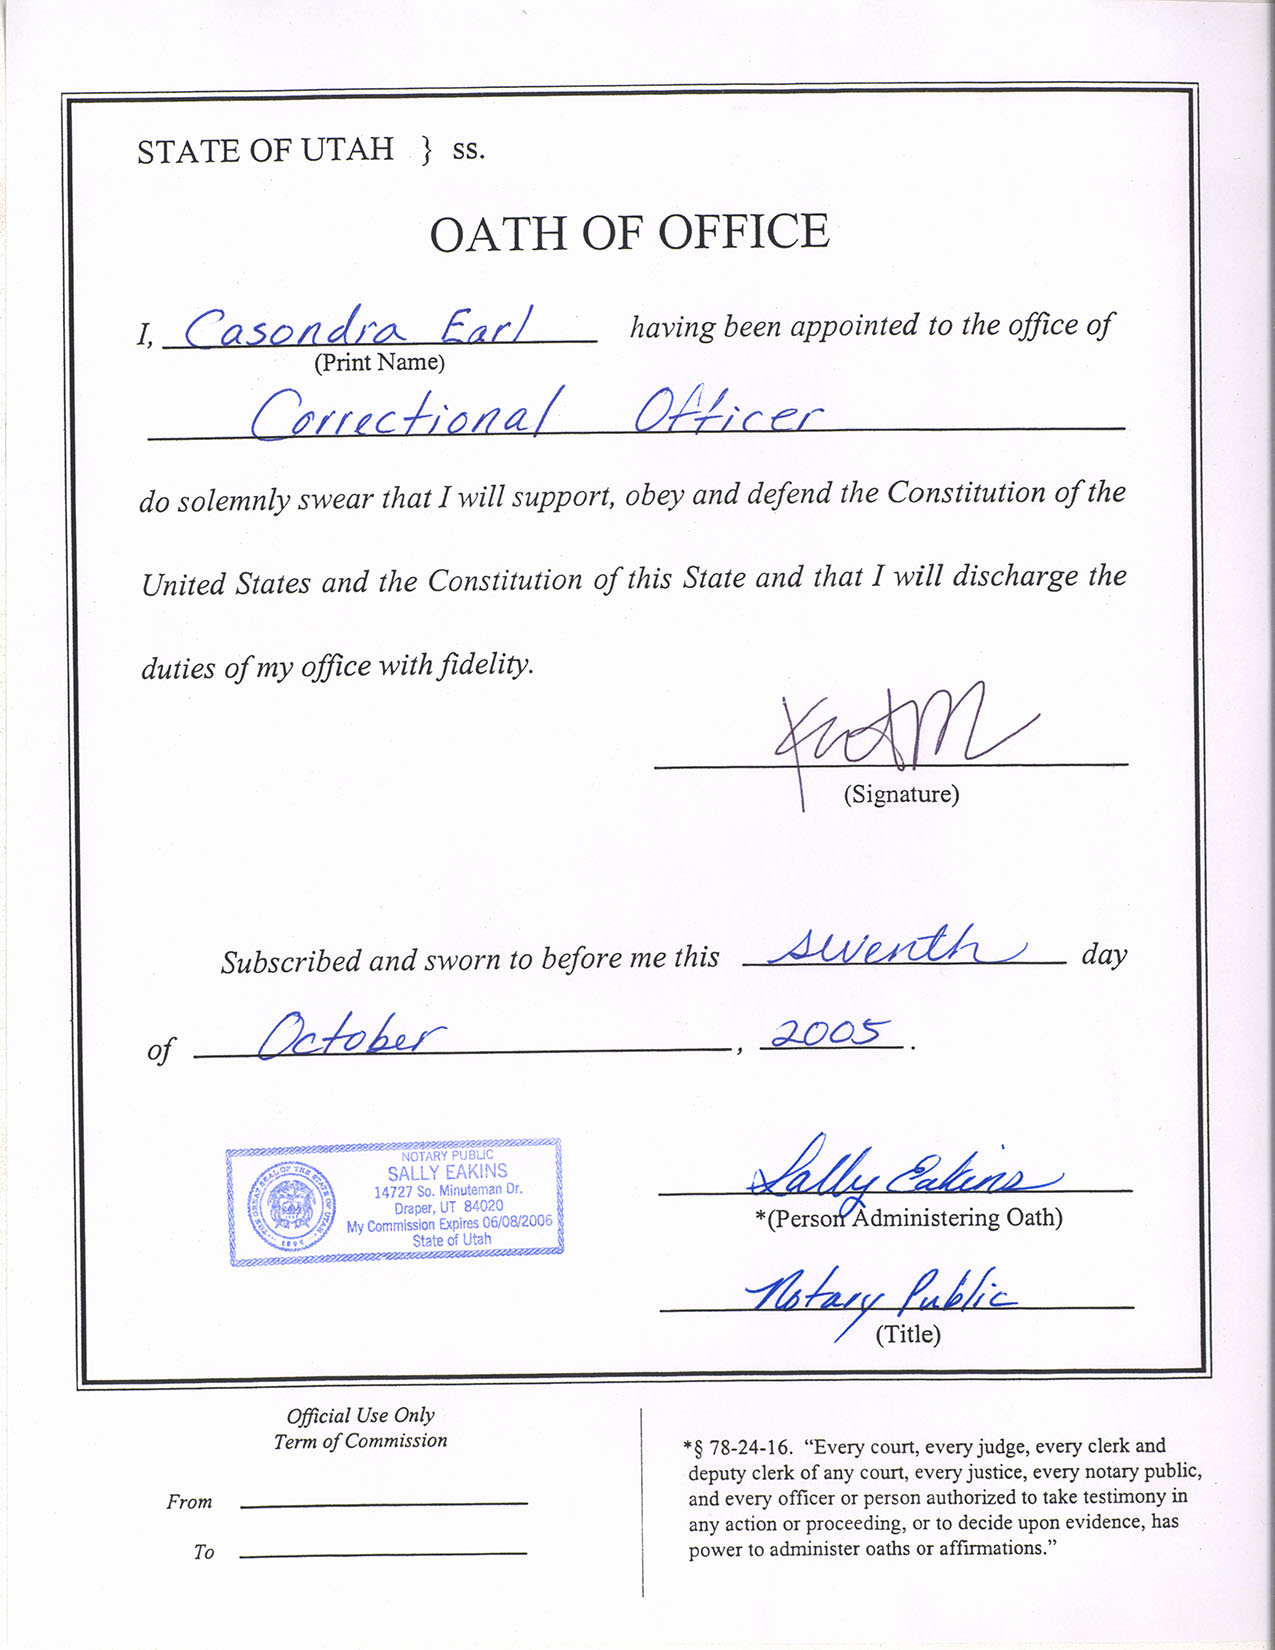 STATE OF UTAH } ss.
OATH OF OFFICE
I, Casondra Earl having been appointed to the office of
(Print Name)
Correctional Officer
do solemnly swear that I will support, obey and defend the Constitution of the
United States and the Constitution of this State and that I will discharge the
duties of my office with fidelity.
(Signature)
Subscribed and sworn to before me this seventh day
of October, 2005.
NOTARY PUBLIC
SALLY EAKINS
14727 So. Minuteman Dr.
Draper, UT 84020
My Commission Expires 06/08/2006
State of Utah
THE GREAT SEAL OF THE STATE OF UTAH
1896
Sally Eakins
*(Person Administering Oath)
Notary Public
(Title)
Official Use Only
Term of Commission
From
To
*§ 78-24-16. “Every court, every judge, every clerk and
deputy clerk of any court, every justice, every notary public,
and every officer or person authorized to take testimony in
any action or proceeding, or to decide upon evidence, has
power to administer oaths or affirmations.”